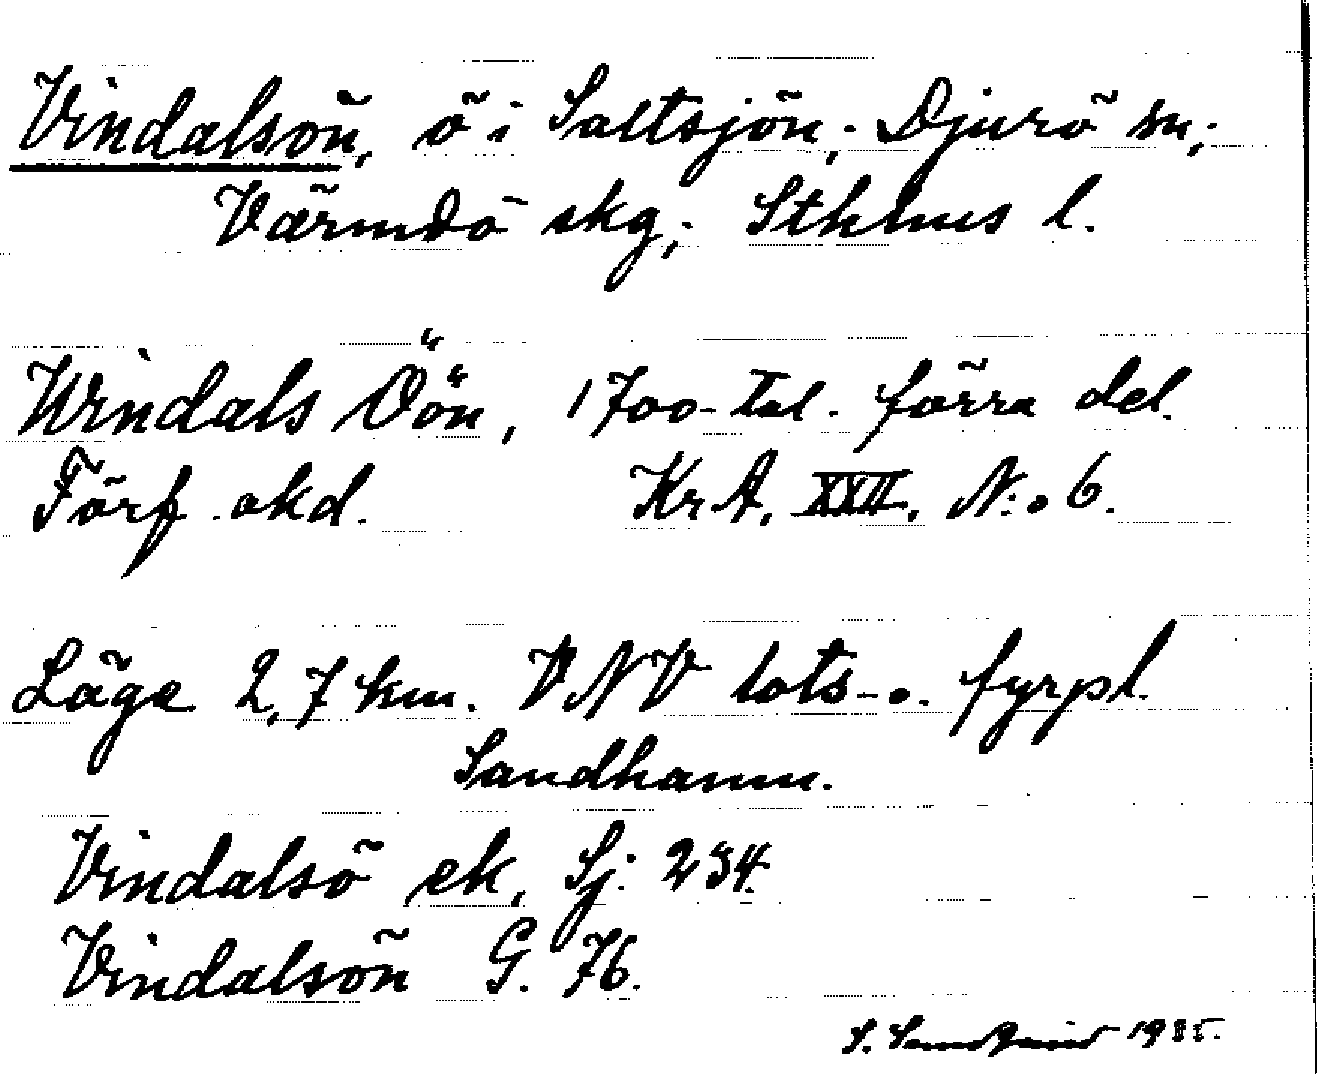 Vindalsön, ö i Saltsjön; Djurö sn;
Värmdö skg; Sthlms l.
Windals Öön, 1700-tal. förra del.
Förf. okd. Kr.A. XXII, N:o 6.
Läge 2,7 km. VNV lots- o. fyrpl.
Sandhamn.
Vindalsö ek, Sj. 234.
Vindalsön G. 76.
S. 1935.